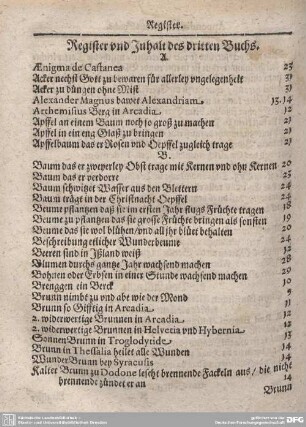 Register.
Register vnd Inhalt des dritten Buchs.
A.
Ænigma de Castanea 23
Acker nechst Gott zu bewaren für allerley vngelegenheit 31
Acker zu düngen ohne Mist 31
Alexander Magnus bawet Alexandriam 13.14
Arthemisius Berg in Arcadia 12
Apffel an einem Baum noch so groß zu machen 21
Apffel in ein eng Glaß zu bringen 21
Apffelbaum das er Rosen vnd Oepffel zugleich trage 21
B.
Baum das er zweyerley Obst trage mit Kernen vnd ohn Kernen 20
Baum das er verdorre 25
Baum schwitzt Wasser aus den Blettern 24
Baum trägt in der Christnacht Oepffel 24
Beume pflantzen daß sie im ersten Jahr flugs Früchte tragen 18
Beume zu pflantzen das sie grosse Früchte bringen als sonsten 19
Beume das sie wol blühen/vnd all jhr blüt behalten
Beschreibung etlicher Wunderbeume 24
Beeren sind in Ißland weiß
Blumen durchs gantze Jahr wachsend machen
Bohnen oder Erbsen in einer Stunde wachsend machen 29
Brenggen ein Berck 10
Brunn nimbt zu vnd abe wie der Mond 9
Brunn so Gifftig in Arcadia 11
2. widerwertige Brunnen in Arcadia 12
2. widerwertige Brunnen in Helvetia vnd Hybernia 13
Sonnen Brunn in Troglodytide
Brunn in Thessalia heilet alle Wunden 14
Wunder Brunn bey Syracusis
Kalter Brunn zu Dodone lescht brennende Fackeln aus/ die nicht
brennende zündet er an 14
Brunn